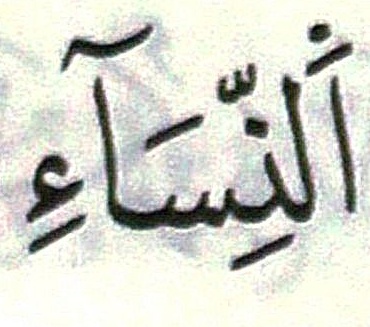 اَلنِّسَآءِ